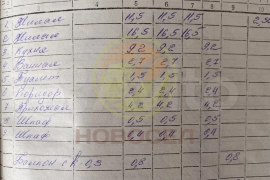 1 2 3 4 5 6 7 8 9 10
1 Жилая 11,5 11,5 11,5
2 Жилая 16,5 16,5 16,5
3 Кухня 9,2 9,2 9,2
Ванная 2,7 2,7 2,7
Туалет 1,5 1,5 1,5
Коридор 2,4 2,4 2,4
Прихожая 4,2 4,2 4,2
Шкаф 0,5 0,5 0,5
Шкаф 0,4 0,4 0,4
НОВОСЁЛ
Балкон с К-0,3 0,8 0,8